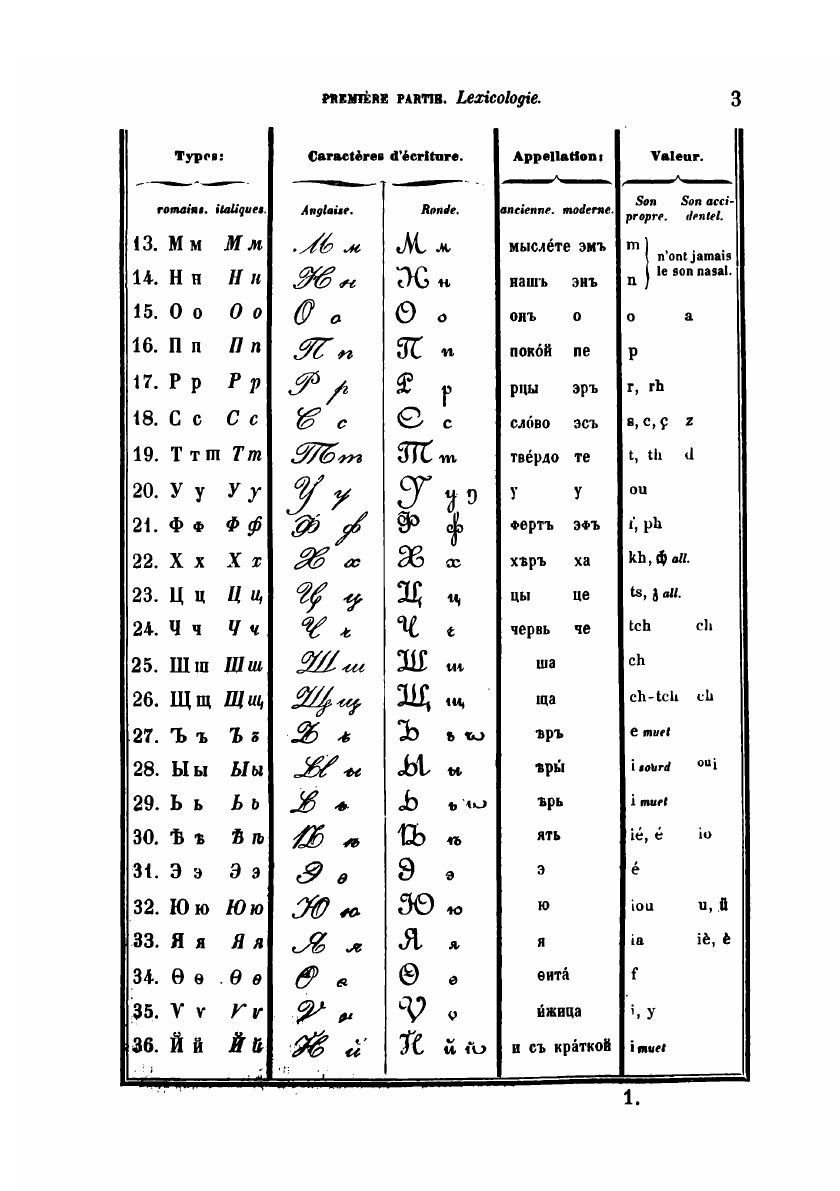 PREMIÈRE PARTIE. Lexicologie. 3
Types: Caractères d'écriture. Appellation: Valeur.
romains. italiques. Anglaise. Ronde. ancienne. moderne. Son propre. Son accidentel.
13. М м М м М м М м мыслéте эмъ m n'ont jamais
14. Н н Н н Н н Н н нашъ энъ n le son nasal.
15. О о О о О о О о онъ о o a
16. П п П п П п П п покóй пе p
17. Р р Р р Р р Р р рцы эръ r, rh
18. С с С с С с С с слóво эсъ s, c, ç z
19. Т т ш Т т Т т Т т твéрдо те t, th d
20. У у У у У у У у у у ou
21. Ф ф Ф ф Ф ф Ф ф фертъ эфъ f, ph
22. Х х Х х Х х Х х хѣръ ха kh, ch all.
23. Ц ц Ц ц Ц ц Ц ц цы це ts, z all.
24. Ч ч Ч ч Ч ч Ч ч червь че tch ch
25. Ш ш Ш ш Ш ш Ш ш ша ch
26. Щ щ Щ щ Щ щ Щ щ ща ch-tch ch
27. Ъ ъ Ъ ъ Ъ ъ Ъ ъ ѣръ e muet
28. Ы ы Ы ы Ы ы Ы ы ѣры́ i sourd oui
29. Ь ь Ь ь Ь ь Ь ь ѣрь i muet
30. Ѣ ѣ Ѣ ѣ Ѣ ѣ Ѣ ѣ ять ié, é io
31. Э э Э э Э э Э э э é
32. Ю ю Ю ю Ю ю Ю ю ю iou u, ü
33. Я я Я я Я я Я я я ia iè, è
34. Ѳ ѳ Ѳ ѳ Ѳ ѳ Ѳ ѳ ѳитá f
35. Ѵ ѵ Ѵ ѵ Ѵ ѵ Ѵ ѵ и́жица i, y
36. Й й Й й Й й Й й и съ крáткой i muet
1.